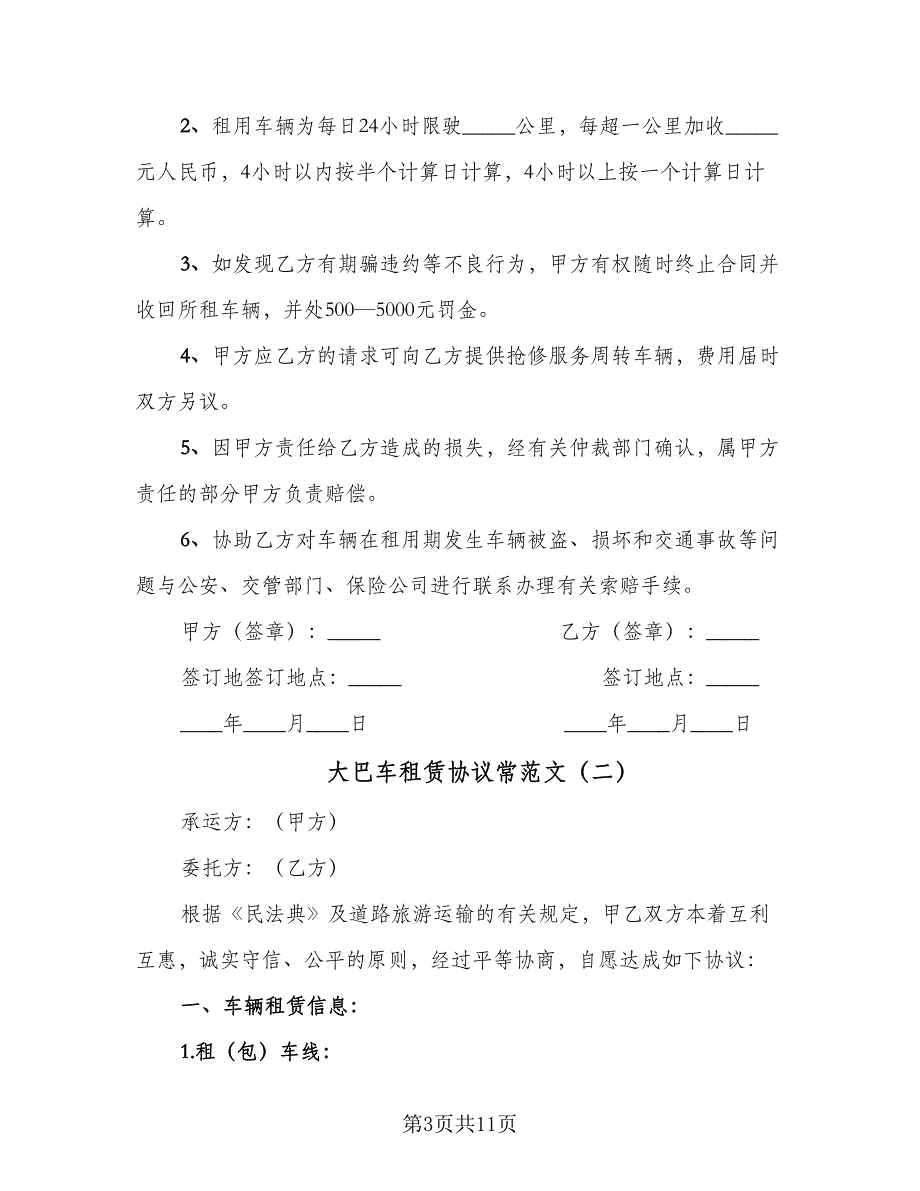 2、租用车辆为每日24小时限驶_____公里，每超一公里加收_____
元人民币，4小时以内按半个计算日计算，4小时以上按一个计算日计
算。
3、如发现乙方有期骗违约等不良行为，甲方有权随时终止合同并
收回所租车辆，并处500—5000元罚金。
4、甲方应乙方的请求可向乙方提供抢修服务周转车辆，费用届时
双方另议。
5、因甲方责任给乙方造成的损失，经有关仲裁部门确认，属甲方
责任的部分甲方负责赔偿。
6、协助乙方对车辆在租用期发生车辆被盗、损坏和交通事故等问
题与公安、交管部门、保险公司进行联系办理有关索赔手续。
甲方（签章）：_____ 乙方（签章）：_____
签订地签订地点：_____ 签订地点：_____
____年____月____日 ____年____月____日
大巴车租赁协议常范文（二）
承运方：（甲方）
委托方：（乙方）
根据《民法典》及道路旅游运输的有关规定，甲乙双方本着互利
互惠，诚实守信、公平的原则，经过平等协商，自愿达成如下协议：
一、车辆租赁信息：
1.租（包）车线：
第3页共11页